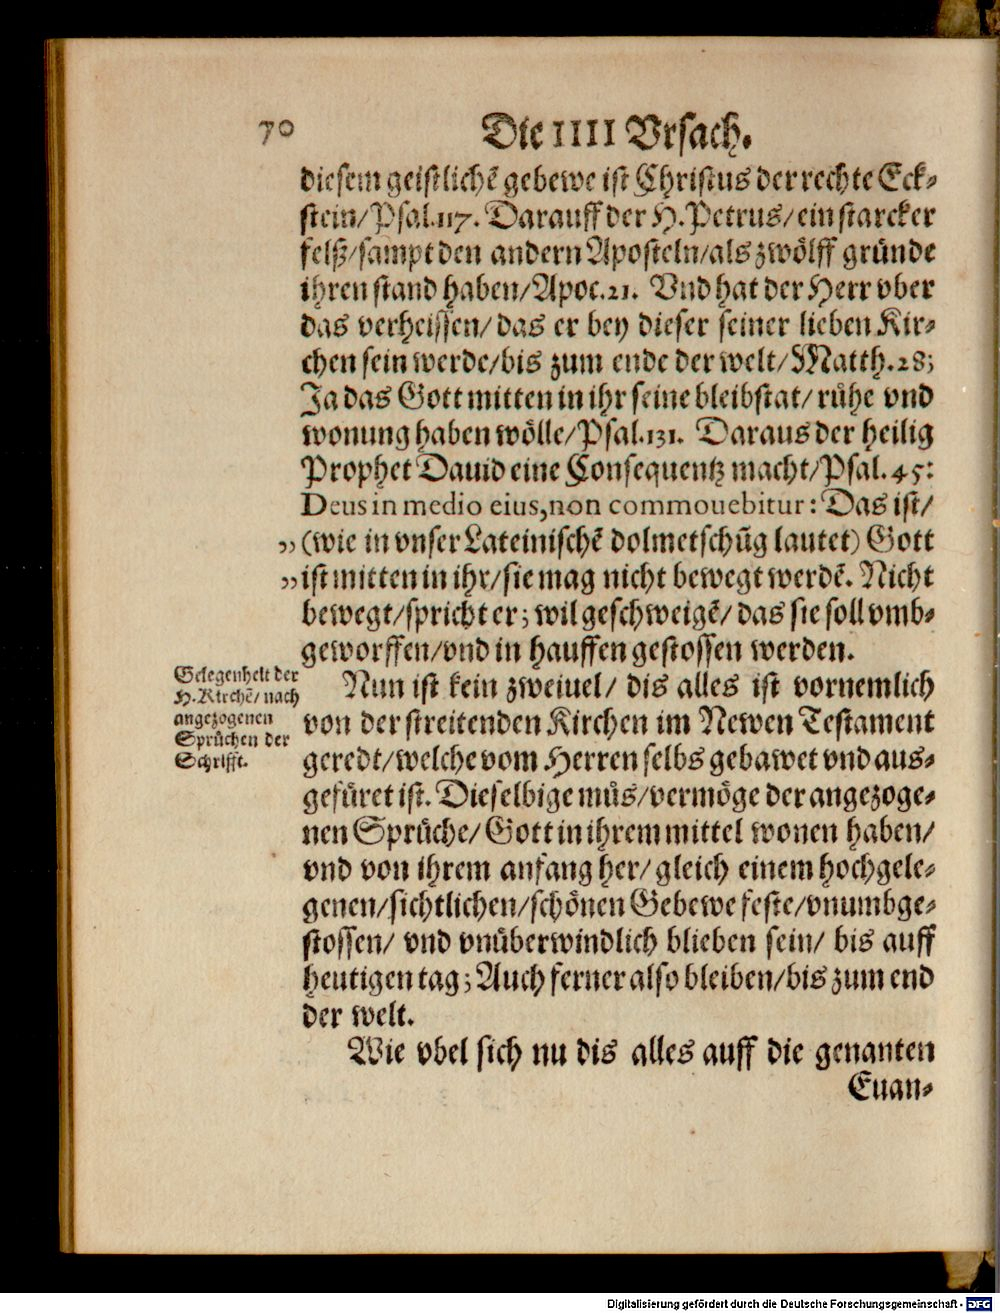 70
Die IIII Vrsach.
diesem geistlichẽ gebewe ist Christus der rechte Eck-
stein/Psal.117. Darauff der H. Petrus/ein starcker
felß/sampt den andern Aposteln/als zwölff gründe
ihren stand haben/Apoc.21. Vnd hat der Herr vber
das verheissen/das er bey dieser seiner lieben Kir-
chen sein werde/bis zum ende der welt/Matth.28;
Ja das Gott mitten in ihr seine bleibstat/rühe vnd
wonung haben wölle/Psal.131. Daraus der heilig
Prophet Dauid eine Consequentz macht/Psal.45:
Deus in medio eius, non commouebitur: Das ist/
„(wie in vnser Lateinischẽ dolmetschũg lautet) Gott
„ist mitten in ihr/sie mag nicht bewegt werdẽ. Nicht
bewegt/spricht er; wil geschweigẽ/das sie soll vmb-
geworffen/vnd in hauffen gestossen werden.
Gelegenheit der
H. Kirchẽ/nach
angezogenen
Sprüchen der
Schrifft.
Nun ist kein zweiuel/ dis alles ist vornemlich
von der streitenden Kirchen im Newen Testament
geredt/welche vom Herren selbs gebawet vnd aus-
gefüret ist. Dieselbige müs/vermöge der angezoge-
nen Sprüche/Gott in ihrem mittel wonen haben/
vnd von ihrem anfang her/gleich einem hochgele-
genen/sichtlichen/schönen Gebewe feste/vnumbge-
stossen/ vnd vnüberwindlich blieben sein/ bis auff
heutigen tag; Auch ferner also bleiben/bis zum end
der welt.
Wie vbel sich nu dis alles auff die genanten
Euan-
Digitalisierung gefördert durch die Deutsche Forschungsgemeinschaft - DFG